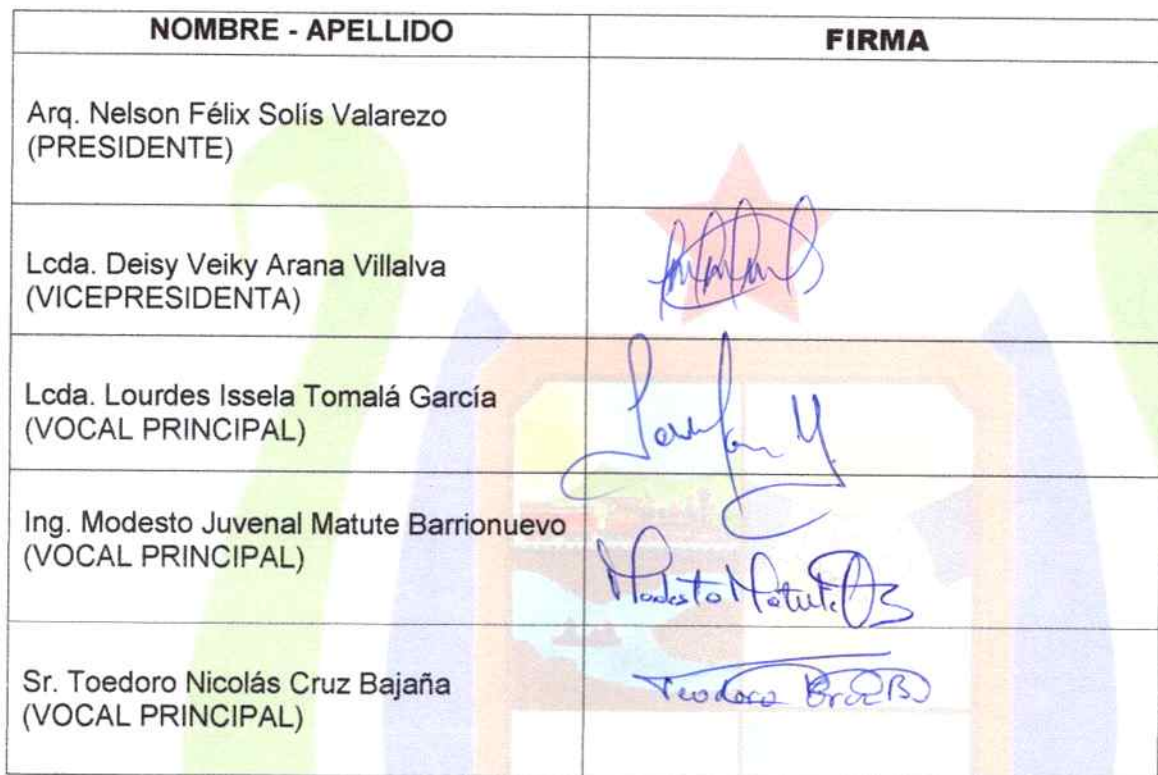 NOMBRE - APELLIDO
FIRMA
Arq. Nelson Félix Solís Valarezo
(PRESIDENTE)
Lcda. Deisy Veiky Arana Villalva
(VICEPRESIDENTA)
Lcda. Lourdes Issela Tomalá García
(VOCAL PRINCIPAL)
Ing. Modesto Juvenal Matute Barrionuevo
(VOCAL PRINCIPAL)
Modesto Matute
Sr. Toedoro Nicolás Cruz Bajaña
(VOCAL PRINCIPAL)
Teodoro